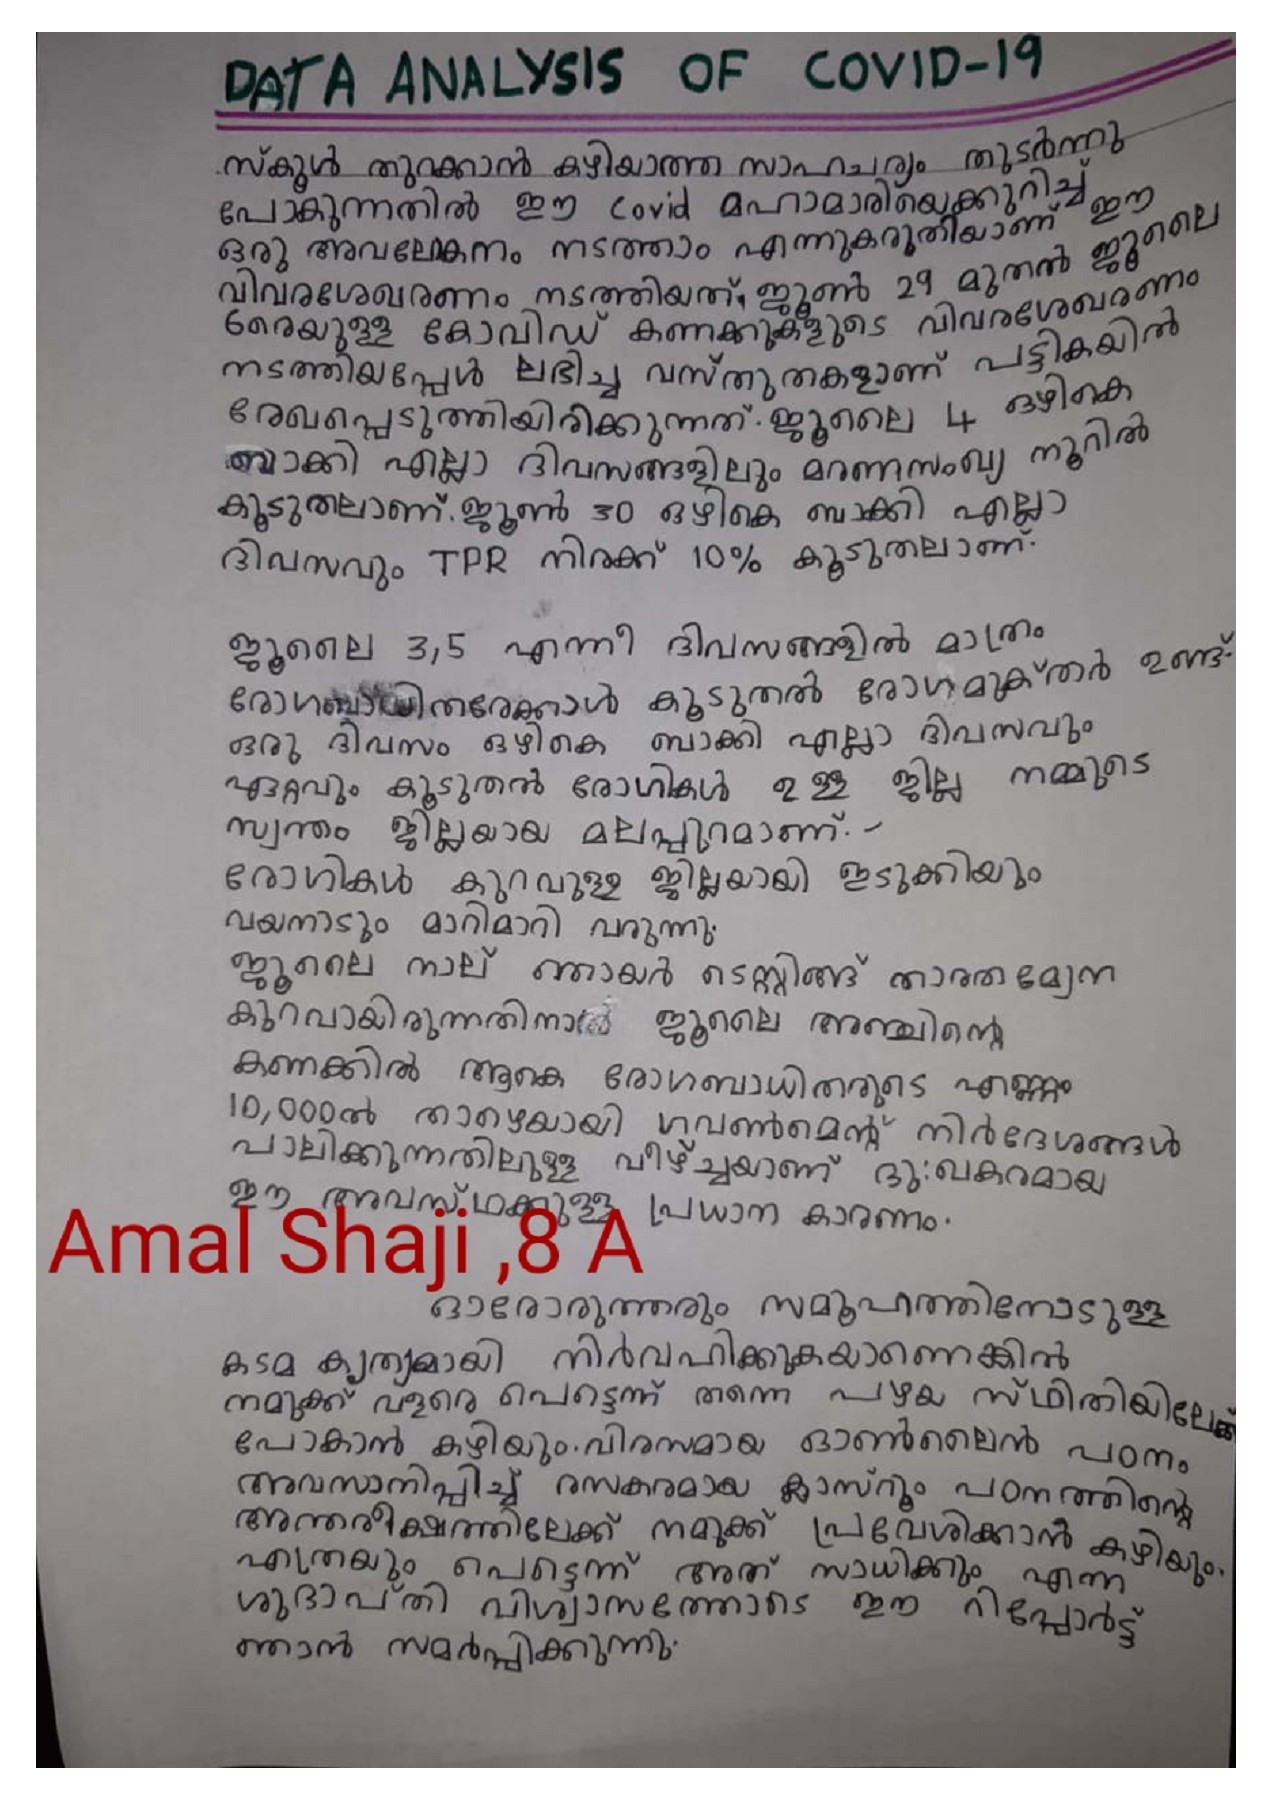 DATA ANALYSIS OF COVID-19
സ്കൂൾ തുറക്കാൻ കഴിയാത്ത സാഹചര്യം തുടർന്നു
പോകുന്നതിൽ ഈ Covid മഹാമാരിയെക്കുറിച്ച്
ഒരു അവലോകനം നടത്താം എന്നുകരുതിയാണ് ഈ
വിവരശേഖരണം നടത്തിയത്. ജൂൺ 29 മുതൽ ജൂലൈ
6രെയുള്ള കോവിഡ് കണക്കുകളുടെ വിവരശേഖരണം
നടത്തിയപ്പേൾ ലഭിച്ച വസ്തുതകളാണ് പട്ടികയിൽ
രേഖപ്പെടുത്തിയിരിക്കുന്നത്. ജൂലൈ 4 ഒഴികെ
ബാക്കി എല്ലാ ദിവസങ്ങളിലും മരണസംഖ്യ നൂറിൽ
കൂടുതലാണ്. ജൂൺ 30 ഒഴികെ ബാക്കി എല്ലാ
ദിവസവും TPR നിരക്ക് 10% കൂടുതലാണ്.
ജൂലൈ 3,5 എന്നീ ദിവസങ്ങളിൽ മാത്രം
രോഗബാധിതരേക്കാൾ കൂടുതൽ രോഗമുക്തർ ഉണ്ട്.
ഒരു ദിവസം ഒഴികെ ബാക്കി എല്ലാ ദിവസവും
ഏറ്റവും കൂടുതൽ രോഗികൾ ഉള്ള ജില്ല നമ്മുടെ
സ്വന്തം ജില്ലയായ മലപ്പുറമാണ്. -
രോഗികൾ കുറവുള്ള ജില്ലയായി ഇടുക്കിയും
വയനാടും മാറിമാറി വരുന്നു.
ജൂലൈ നാല് ഞായർ ടെസ്റ്റിങ്ങ് താരതമ്യേന
കുറവായിരുന്നതിനാൽ ജൂലൈ അഞ്ചിന്റെ
കണക്കിൽ ആകെ രോഗബാധിതരുടെ എണ്ണം
10,000ൽ താഴെയായി ഗവൺമെന്റ് നിർദേശങ്ങൾ
പാലിക്കുന്നതിലുള്ള വീഴ്ച്ചയാണ് ദു:ഖകരമായ
ഈ അവസ്ഥക്കുള്ള പ്രധാന കാരണം.
Amal Shaji ,8 A
ഓരോരുത്തരും സമൂഹത്തിനോടുള്ള
കടമ കൃത്യമായി നിർവഹിക്കുകയാണെങ്കിൽ
നമുക്ക് വളരെ പെട്ടെന്ന് തന്നെ പഴയ സ്ഥിതിയിലേക്ക്
പോകാൻ കഴിയും. വിരസമായ ഓൺലൈൻ പഠനം
അവസാനിപ്പിച്ച് രസകരമായ ക്ലാസ്റൂം പഠനത്തിന്റെ
അന്തരീക്ഷത്തിലേക്ക് നമുക്ക് പ്രവേശിക്കാൻ കഴിയും.
എത്രയും പെട്ടെന്ന് അത് സാധിക്കും എന്ന
ശുദാപ്തി വിശ്വാസത്തോടെ ഈ റിപ്പോർട്ട്
ഞാൻ സമർപ്പിക്കുന്നു.